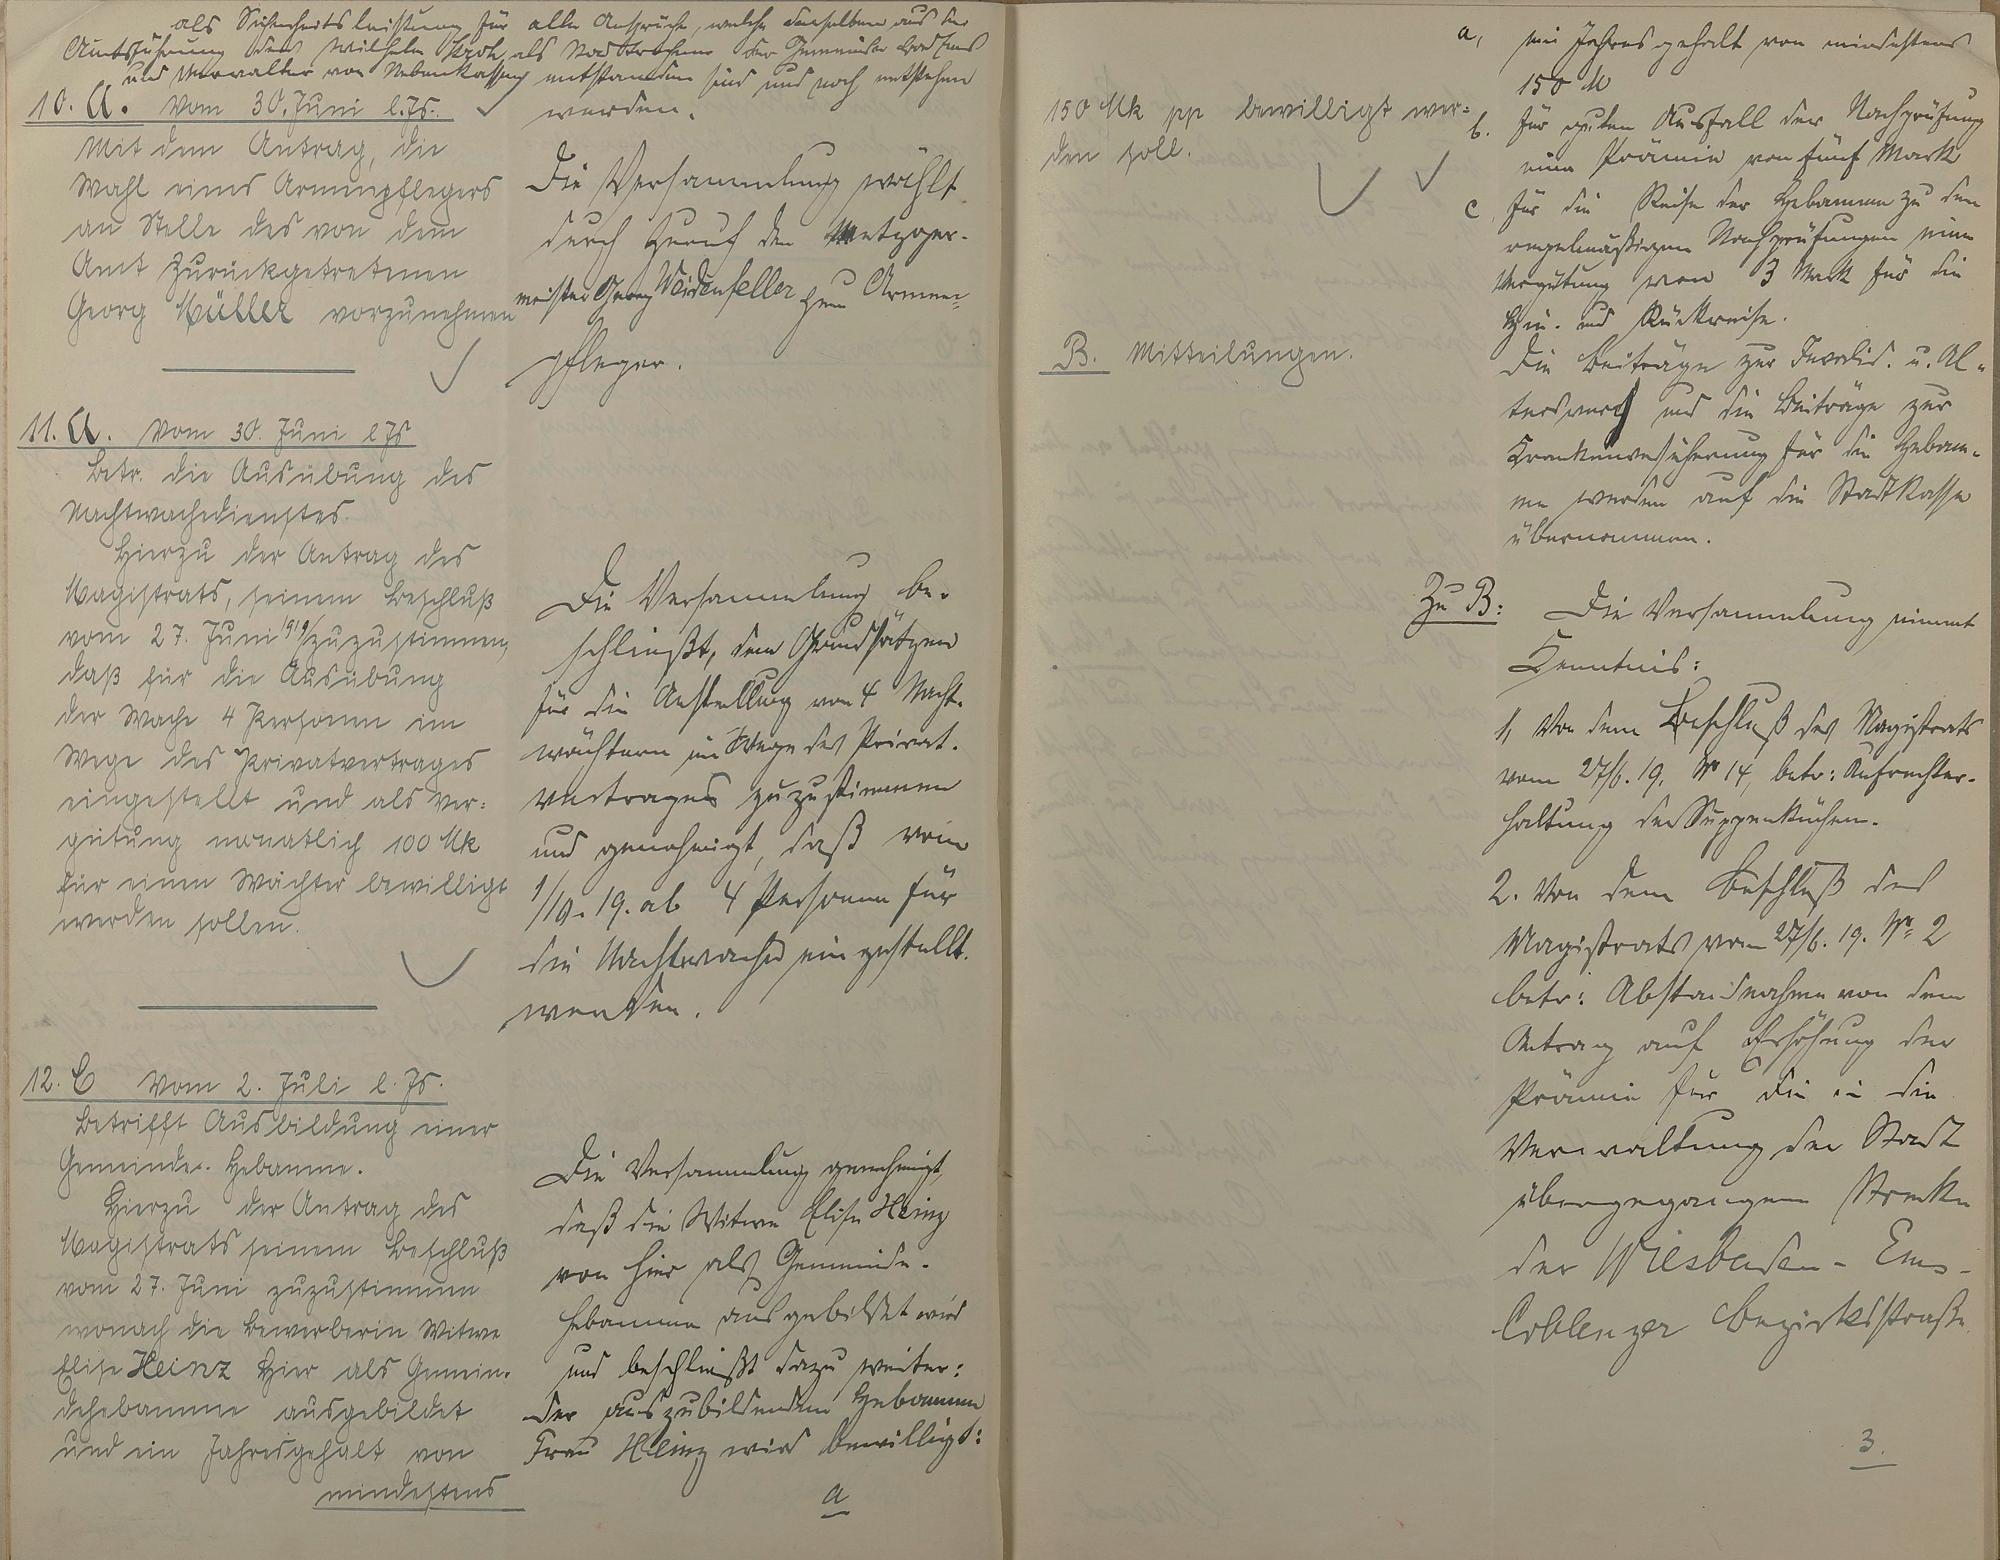 als Sicherheitsleistung für alle Ansprüche, welche derselben aus der
Amtsführung des Wilhelm als Stadtrechner der Gemeinde
und Verwalter von Nebenkassen entstanden sind und noch entstehen
werden.
10. A. Vom 30. Juni l. Js.
Mit dem Antrag, die
Wahl eines Armenpflegers
an Stelle des von dem
Amt zurückgetretenen
Georg Müller vorzunehmen
Die Versammlung wählt
durch Zuruf den Metzger-
meister Georg Weidenfeller zum Armen-
pfleger.
11. A. Vom 30. Juni l Js
Betr. die Ausübung des
Nachtwachedienstes.
Hierzu der Antrag des
Magistrats, seinem Beschluß
vom 27. Juni 1919 zuzustimmen,
daß für die Ausübung
der Wache 4 Personen im
Wege des Privatvertrages
eingestellt und als Ver-
gütung monatlich 100 Mk
für einen Wächter bewilligt
werden sollen.
Die Versammlung be-
schließt, den Grundsätzen
für die Anstellung von 4 Nacht-
wächtern im Wege des Privat-
vertrages zuzustimmen
und genehmigt, daß vom
1/10. 19. ab 4 Personen für
die Nachtwache eingestellt
werden.
12. C Vom 2. Juli l. Js.
Betrifft Ausbildung einer
Gemeinde-Hebamme.
Hierzu der Antrag des
Magistrats seinem Beschluß
vom 27. Juni zuzustimmen
wonach die Bewerberin Witwe
Elise Heinz hier als Gemein-
dehebamme ausgebildet
und ein Jahresgehalt von
mindestens
Die Versammlung genehmigt,
daß die Witwe Elise Heinz
von hier als Gemeinde-
hebamme ausgebildet wird
und beschließt dazu weiter:
der auszubildenden Hebamme
Frau Heinz wird bewilligt:
a
150 Mk pp bewilligt wer-
den soll.
a, ein Jahresgehalt von mindestens
150 M
b. für guten Ausfall der Nachprüfung
eine Prämie von fünf Mark
c, für die Reise der Hebamme zu den
regelmäßigen Nachprüfungen eine
Vergütung von 3 Mark für die
Hin- und Rückreise.
Die Beiträge zur Invalid. u. Al-
tersvers und die Beiträge zur
Krankenversicherung für die Hebam-
me werden auf die Stadtkasse
übernommen.
B. Mitteilungen.
Zu B: Die Versammlung nimmt
Kenntnis:
1, Von dem Beschluß des Magistrats
vom 27/6. 19. No 14, betr: Aufrechter-
haltung der Suppenküchen.
2. Von dem Beschluß des
Magistrats vom 27/6. 19. No 2
betr: Abstandnahme von dem
Antrag auf Erhöhung der
Prämie für die in die
Verwaltung der Stadt
übergegangene Strecke
der Wiesbaden-Ems-
Coblenzer Bezirksstraße.
3.